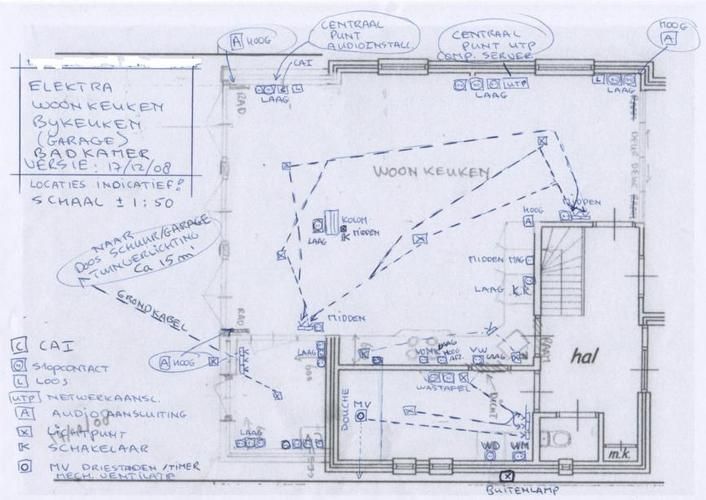 ELEKTRA
WOONKEUKEN
BYKEUKEN
(GARAGE)
BADKAMER
VERSIE: 17/12/08
LOCATIES INDICATIEF!
SCHAAL ± 1:50
A HOOG
CENTRAAL
PUNT
AUDIOINSTALL.
CAI
C L
LAAG
CENTRAAL
PUNT UTP
COMP. SERVER
UTP
LAAG
HOOG
A
L
LAAG
RAD
WOONKEUKEN
KOLOM
MIDDEN
LAAG
K
MIDDEN
HOOG
A
MIDDEN MAG
LAAG
K.K
MIDDEN
NAAR
DOOS SCHUUR/GARAGE
TUINVERLICHTING
Ca 15 m
GRONDKABEL
RAD
A HOOG
LAAG
LAAG
LAAG
HOOG
VW
LAAG
hal
DOUCHE
MV
WASTAFEL
WD
WM
m.k.
BUITENLAMP
C CAI
STOPCONTACT
L LOOS
UTP NETWERKAANSL.
A AUDIOAANSLUITING
X LICHTPUNT
K SCHAKELAAR
MV DRIESTANDEN/TIMER
MECH. VENTILATIE